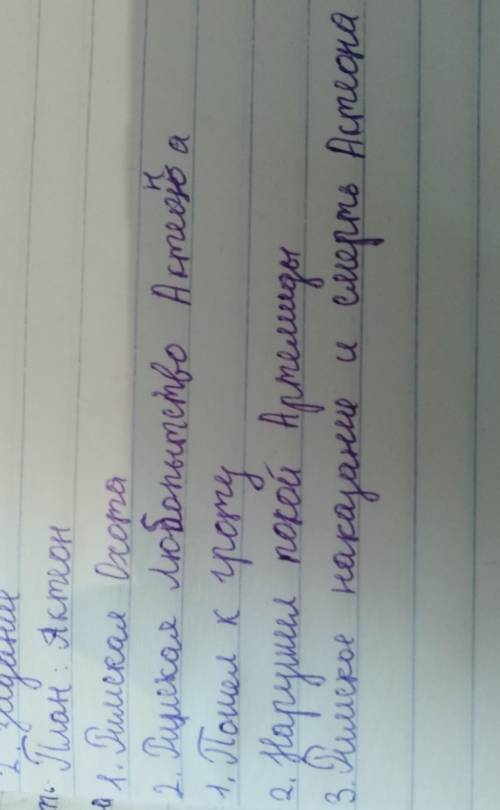 2. задание
План: Актеон
1. Римская Охота
2. Римская любопытство Актеона
1. Пошел к гроту
2. Нарушил покой Артемиды
3. Римское наказание и смерть Актеона